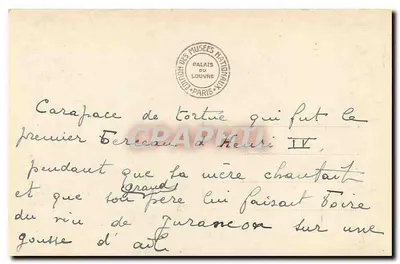 EDITION DES MUSÉES NATIONAUX
PALAIS
DU
LOUVRE
PARIS
Carapace de tortue qui fut le
premier berceau d'Henri IV,
pendant que sa mère chantait
et que son grand père lui faisait boire
du vin de Jurançon sur une
gousse d'ail
CPARAMA